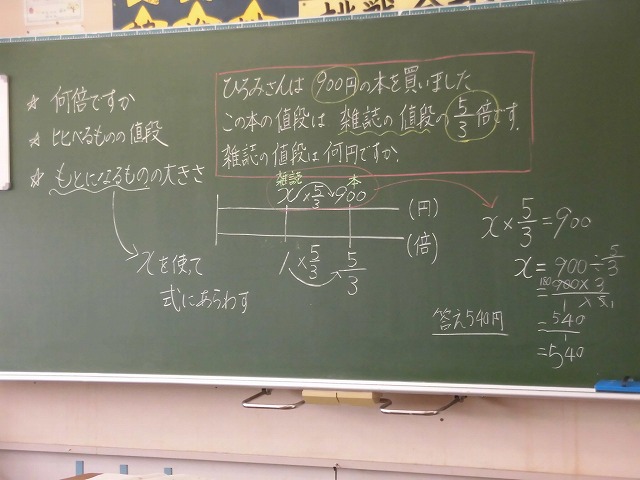 ☆ 何倍ですか
☆ 比べるものの値段
☆ もとになるものの大きさ
xを使って
式にあらわす
ひろみさんは900円の本を買いました
この本の値段は 雑誌の値段の5/3倍です.
雑誌の値段は何円ですか.
雑誌 本
x ×5/3 900
(円)
(倍)
1 ×5/3 5/3
x × 5/3 = 900
x = 900 ÷ 5/3
= 180 900 × 3 / 1 × 5 1
= 540/1
= 540
答え540円